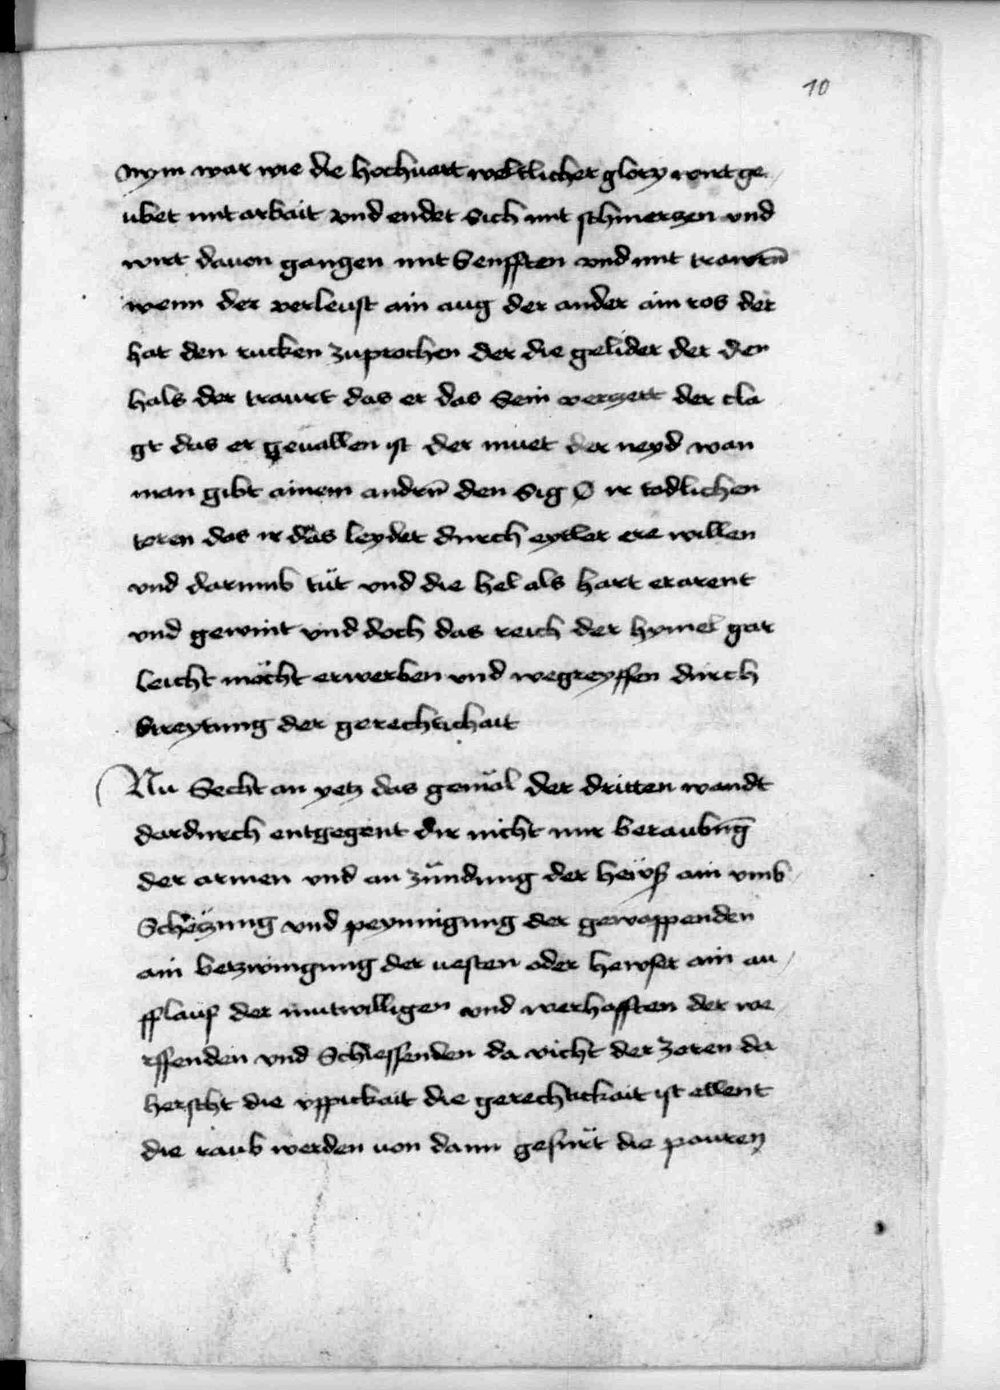 10
Nym war wie die hochuart weltlicher glory wirt ge
ubet mit arbait vnd endet sich mit schmerczen vnd
wirt dauon gangen mit Senfften vnd mit trawrn̄
wenn der verleust ain aug der ander ain ros der
hat den rucken zuprochen der die gelider der den
hals der traurt das er das Sein verzert der cla
gt das er geuallen ist der muet der neyd wan
man gibt ainem andrn̄ den Sig O ir todlichen
toren das ir das leydet durch eytler ere willen
vnd darumb tüt vnd die hel als hart erarent
vnd gewint vnd doch das reich der hymel gar
leicht möcht erwerben vnd wegreyffen durch
Streytung der gerechtichait
Nu Secht an yetz das gemäl der dritten wandt
dardurch entgegent dir nicht nur beraubūg
der armen vnd an zündung der hewß ain vmb
Schetzung vnd peynnigung der gewappenden
ain betzwingung der uesten oder hewser ain au
fflauf der mutwilligen vnd werhafften der we
rffenden vnd Schiessenden da vicht der zoren da
herscht die vppickait die gerechtickait ist ellent
die raub werden von dann gefürt die pauren